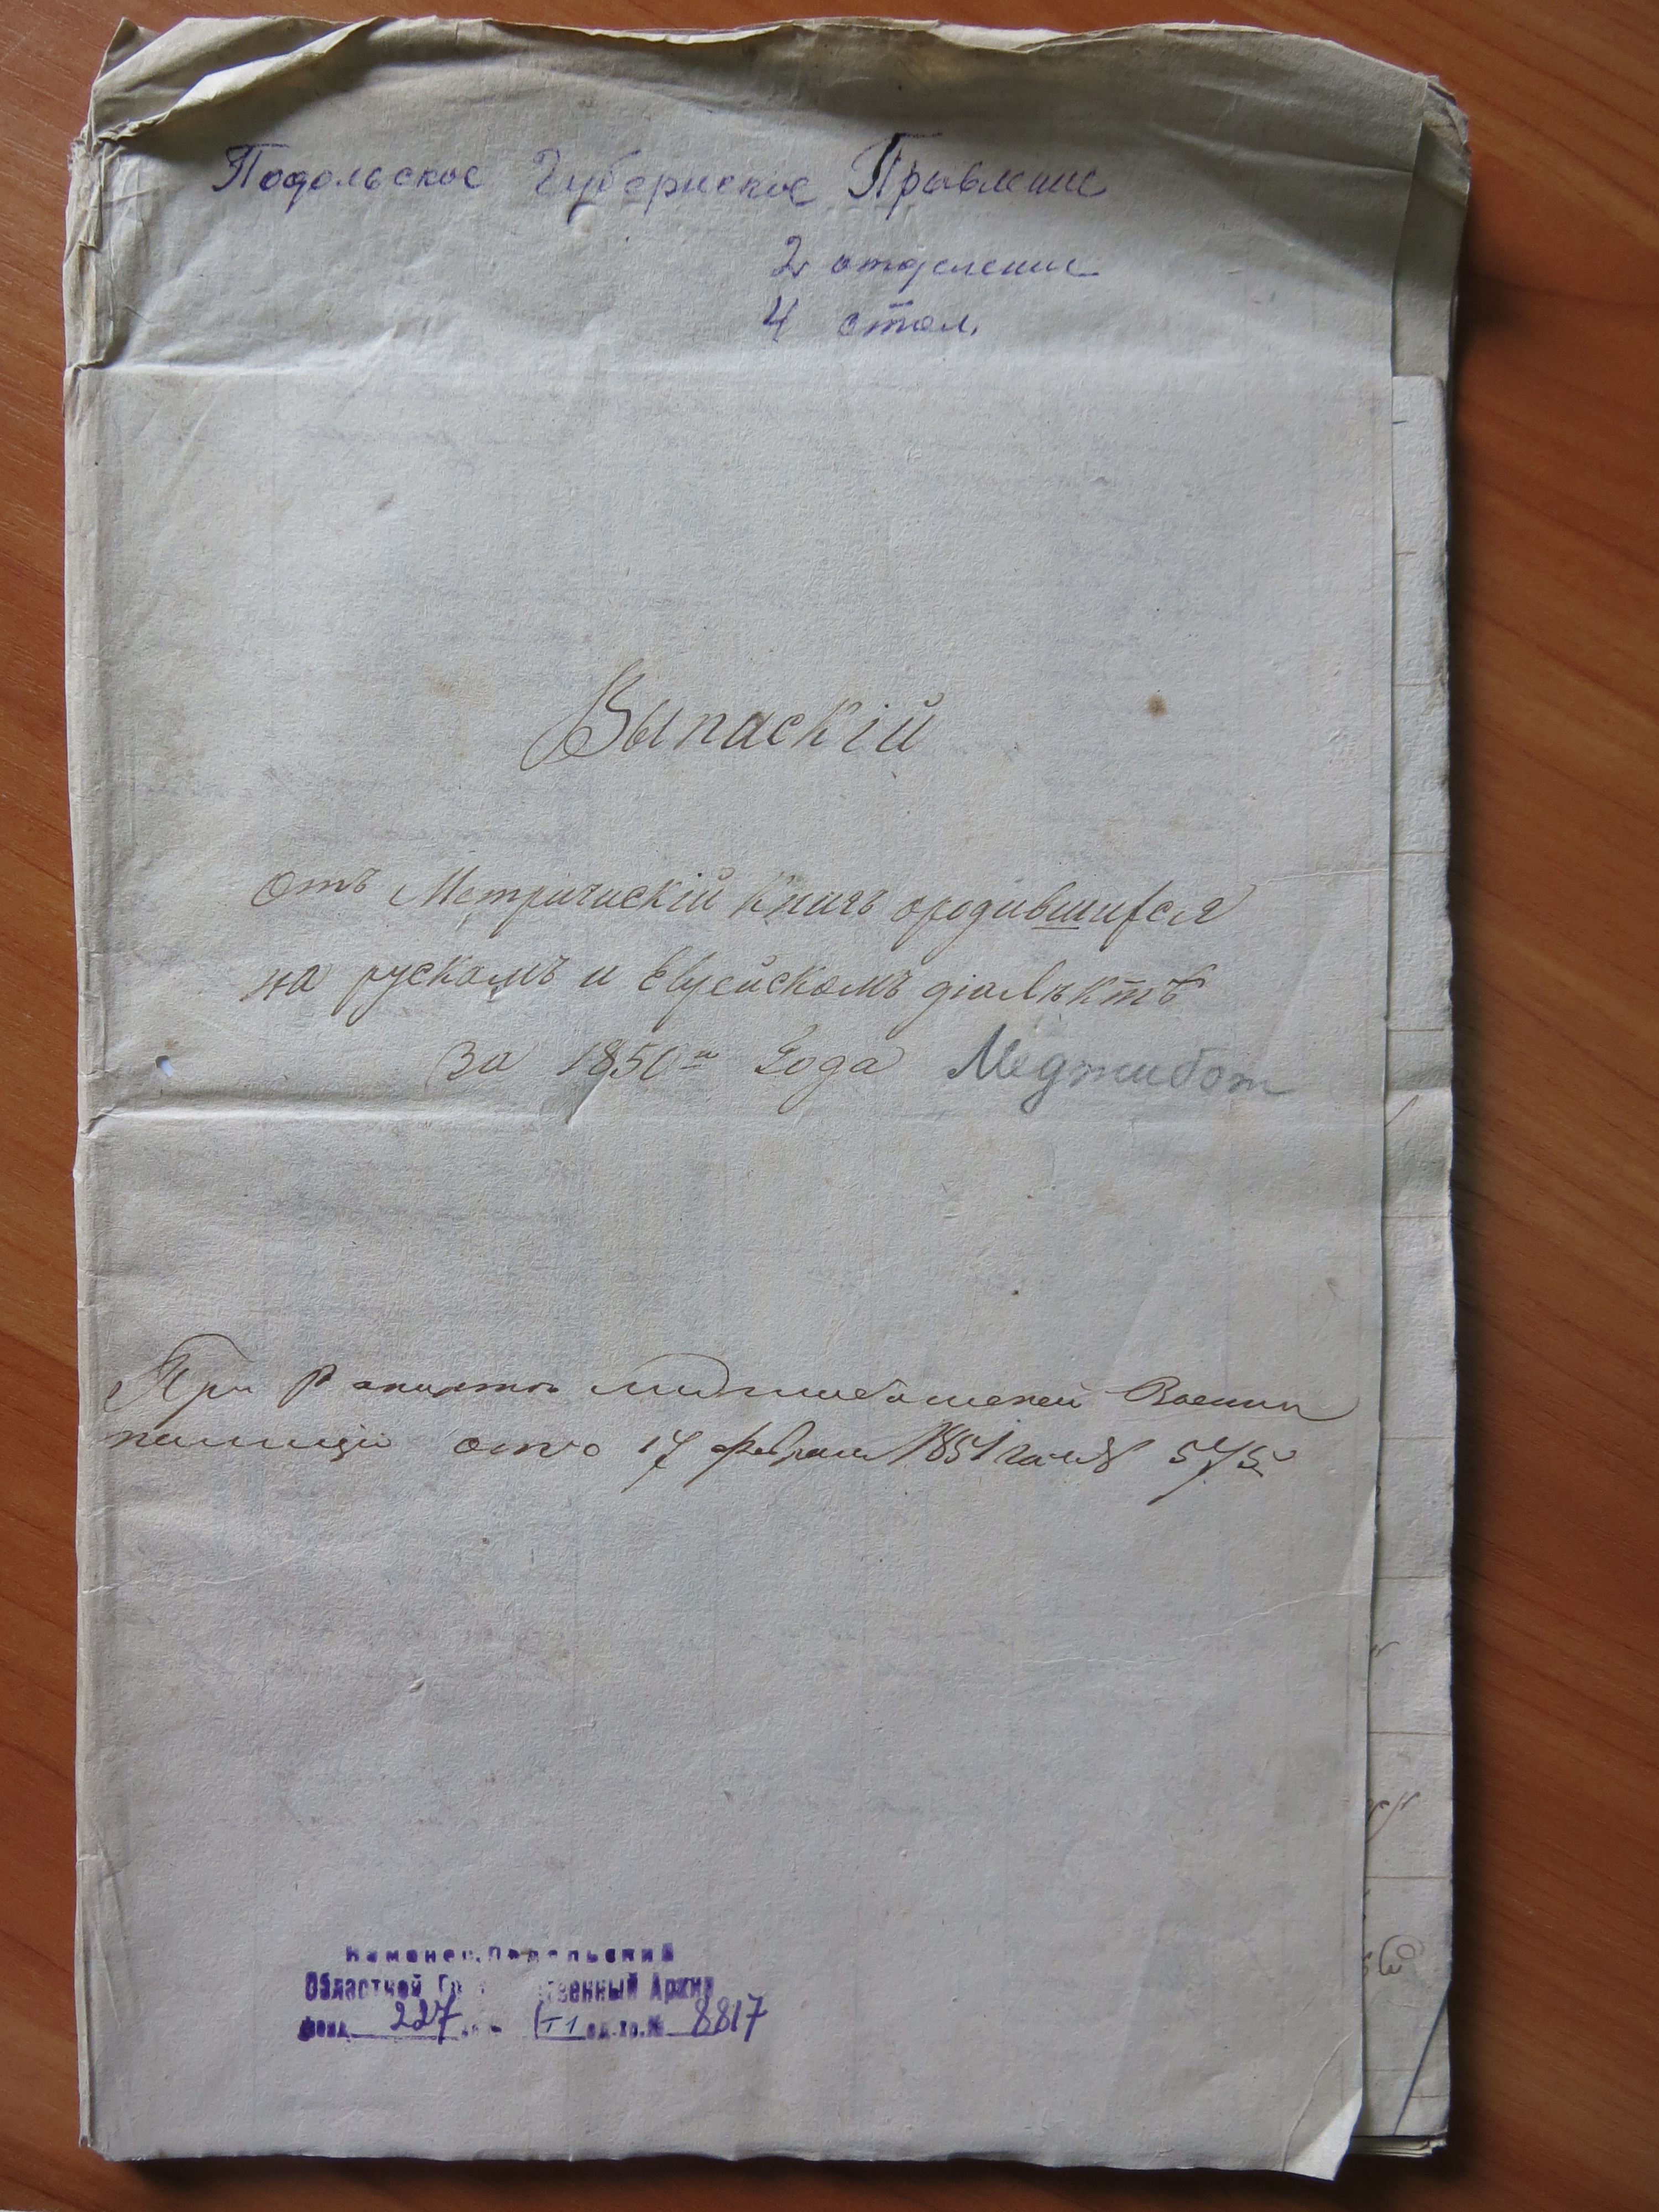 Подольское Губернское Правление
2 отделение
4 стол.
Выпаскій
Отъ Метрическій книгъ ородившихся
на рускомъ и Еврейскомъ діалѣктѣ
За 1850 Года Меджибот
При Рапорте Меджибожской Военной
полиціи отъ 17 февраля 1851 года № 575
Каменец-Подольский
Областной Государственный Архив
фонд 227 оп. т 1 ед. хр. № 8817